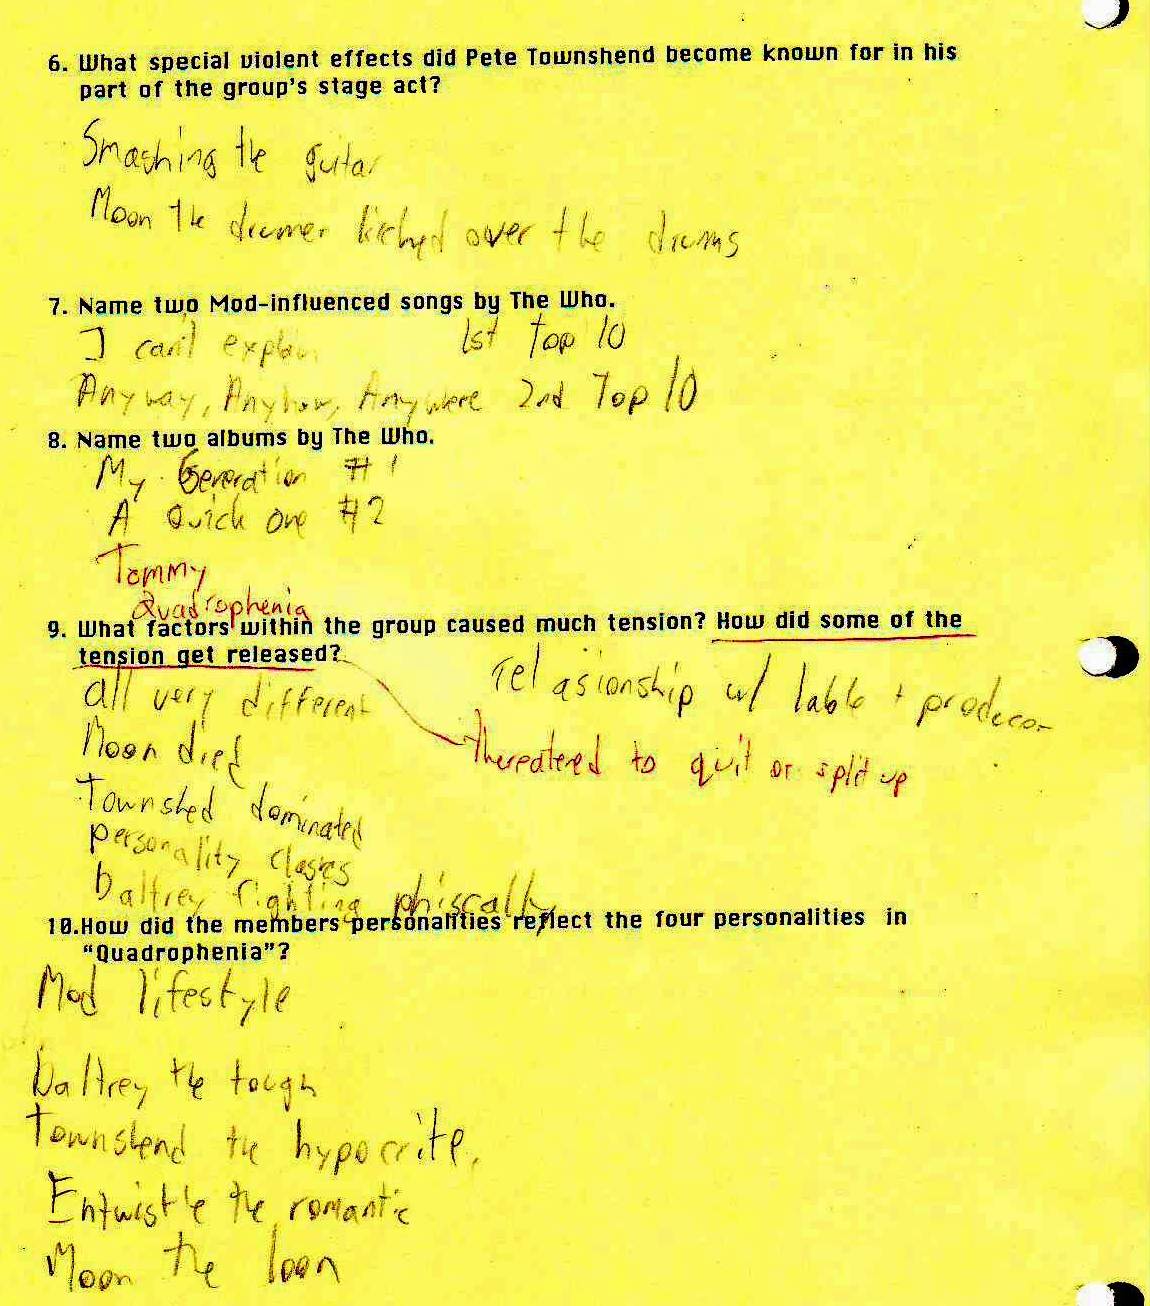 6. What special violent effects did Pete Townshend become known for in his
part of the group's stage act?
Smashing the guitar
Moon the drumer kicked over the drums
7. Name two Mod-influenced songs by The Who.
I can't explain 1st Top 10
Anyway, Anyhow, Anywere 2nd Top 10
8. Name two albums by The Who.
My Generation #1
A Quick One #2
Tommy
Quadrophenia
9. What factors within the group caused much tension? How did some of the
tension get released?
all very different relasionship w/ lable + producor
Moon died Thereatered to quit or split up
Townshed dominated
personality clases
Daltrey fighting phiscally
10.How did the members personalities reflect the four personalities in
"Quadrophenia"?
Mod lifestyle
Daltrey the tough
Townshend the hypocrite,
Entwistle the romantic
Moon the loon